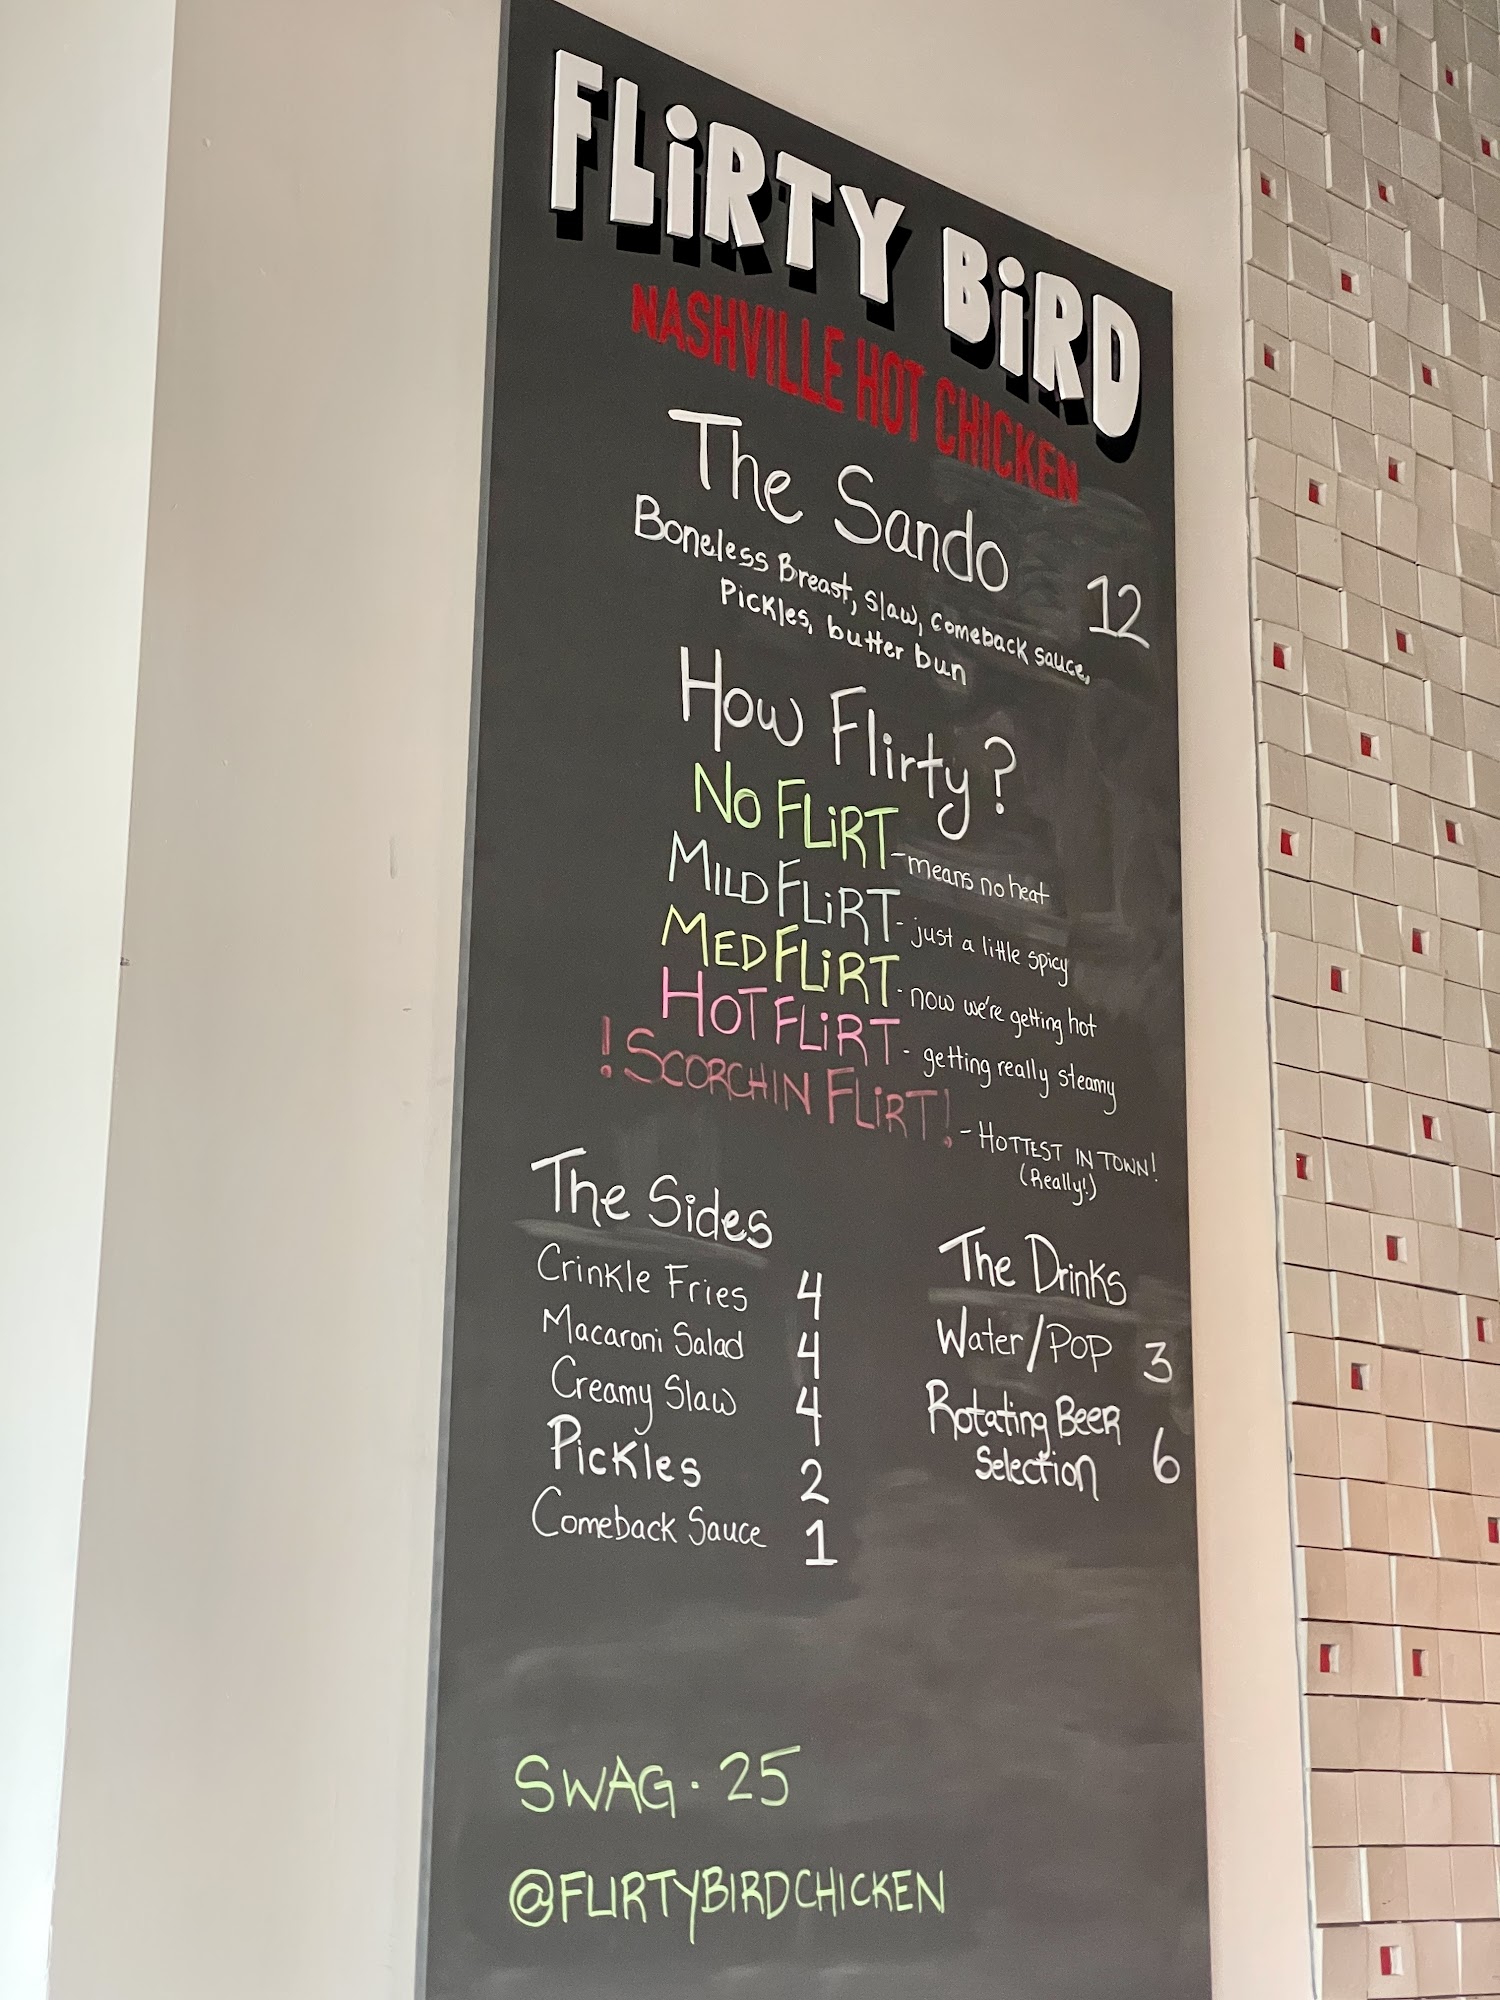 FLiRTY BiRD
NASHVILLE HOT CHICKEN
The Sando 12
Boneless Breast, slaw, comeback sauce,
Pickles, butter bun
How Flirty?
NO FLiRT - means no heat
MILD FLiRT - just a little spicy
MED FLiRT - now we're getting hot
HOT FLiRT - getting really steamy
! SCORCHIN FLiRT! - HOTTEST IN TOWN!
(Really!)
The Sides
Crinkle Fries 4
Macaroni Salad 4
Creamy Slaw 4
Pickles 2
Comeback Sauce 1
The Drinks
Water/POP 3
Rotating Beer
Selection 6
SWAG · 25
@FLIRTYBIRDCHICKEN